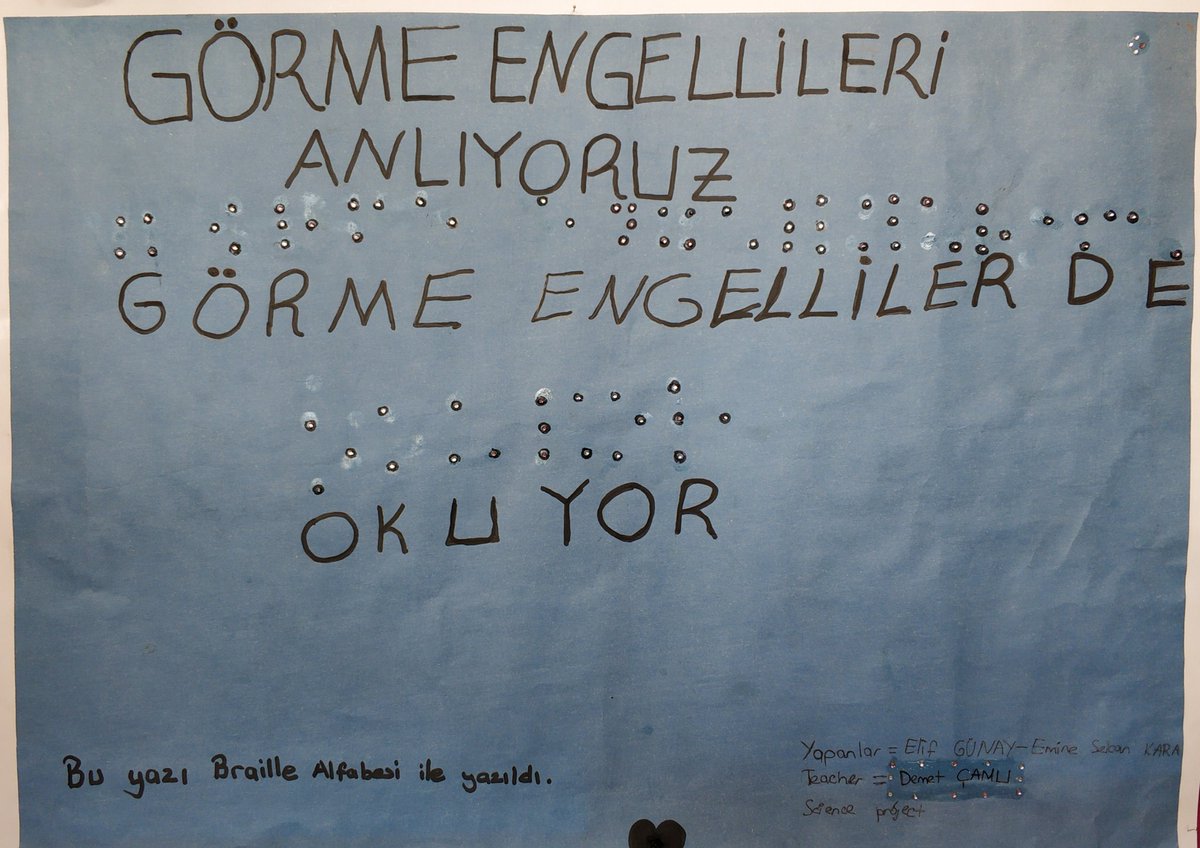 GÖRME ENGELLİLERİ
ANLIYORUZ
GÖRME ENGELLİLER DE
OKUYOR
Bu yazı Braille Alfabesi ile yazıldı.
Yapanlar = Elif GÜNAY-Emine Selcan KARA
Teacher = Demet ÇAMLI
Science project